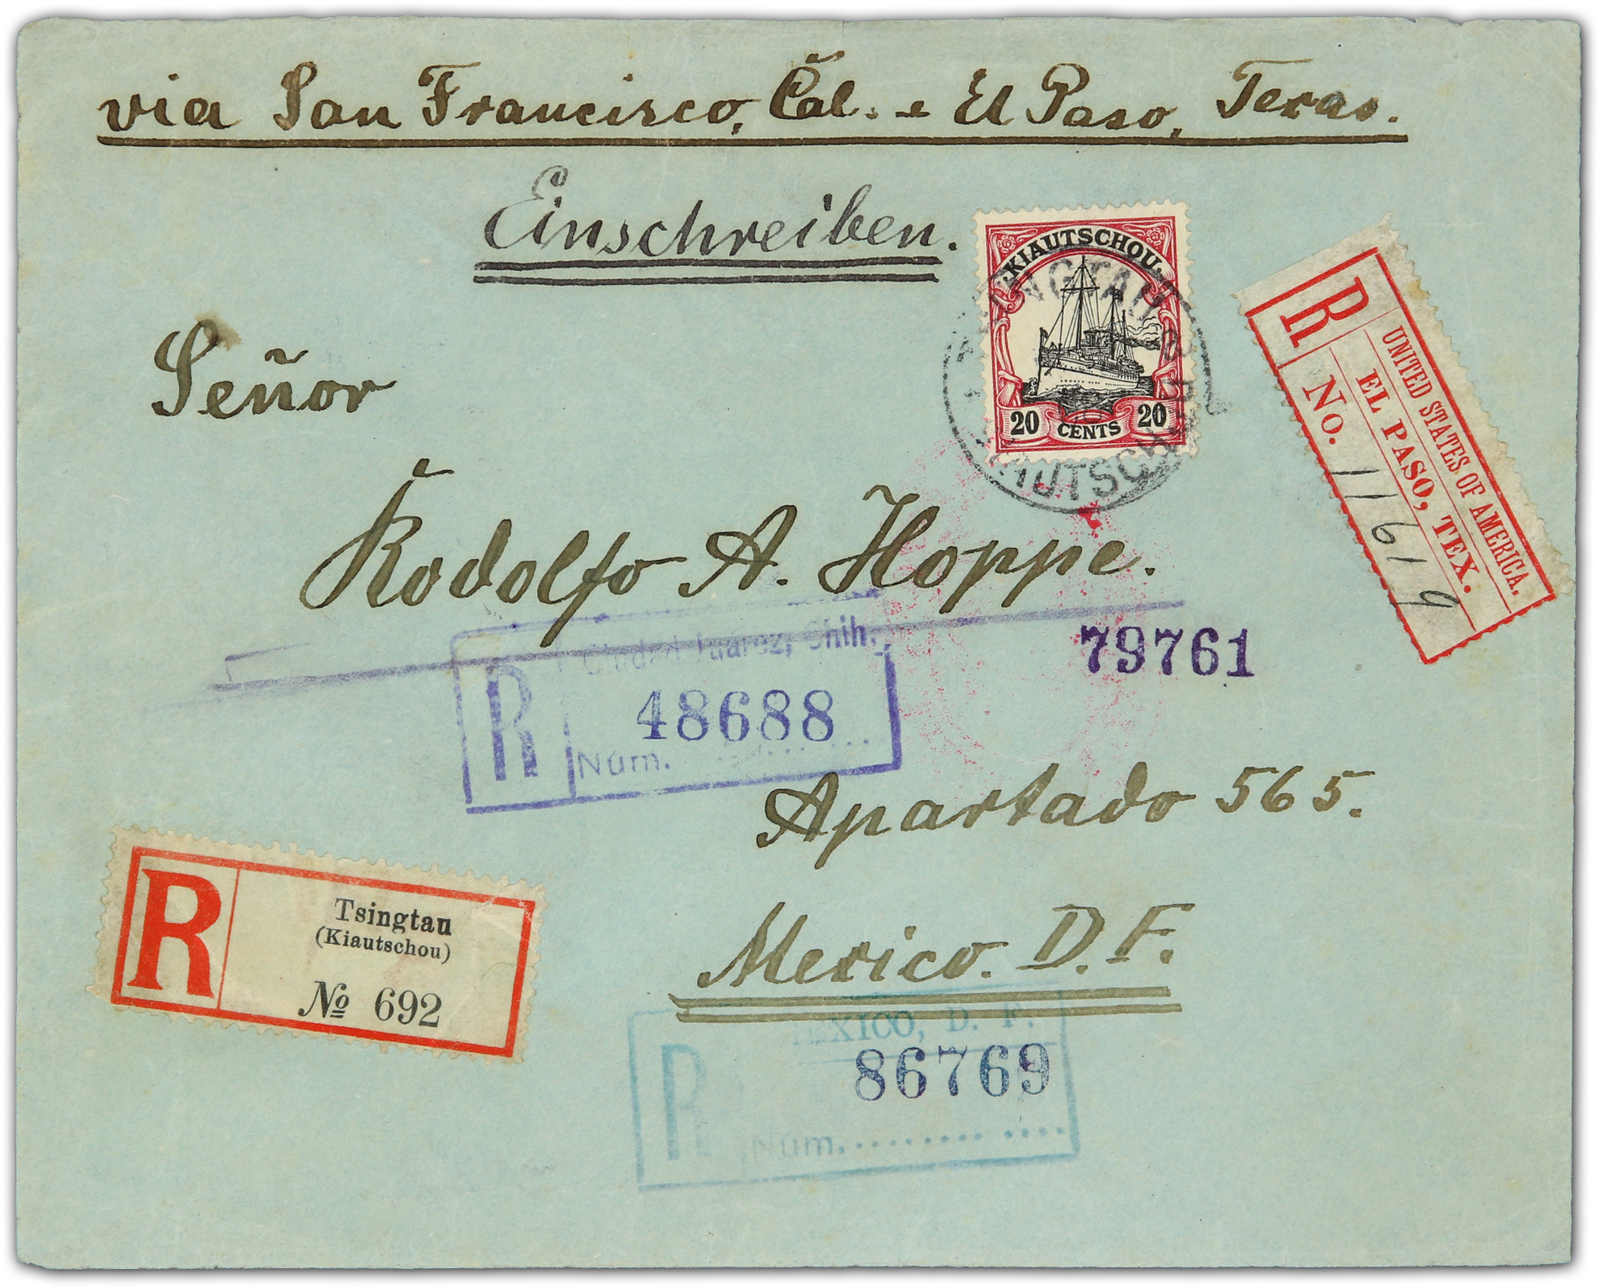 via San Francisco, Cal. - El Paso, Texas.
Einschreiben.
KIAUTSCHOU
20 CENTS 20
R
UNITED STATES OF AMERICA.
EL PASO, TEX.
No. 11619
Señor
Rodolfo A. Hoppe.
79761
R
Ciudad Juarez, Chih.
48688
Núm.
Apartado 565.
Mexico. D. F.
R
Tsingtau
(Kiautschou)
№ 692
R
MEXICO, D. F.
86769
Núm.